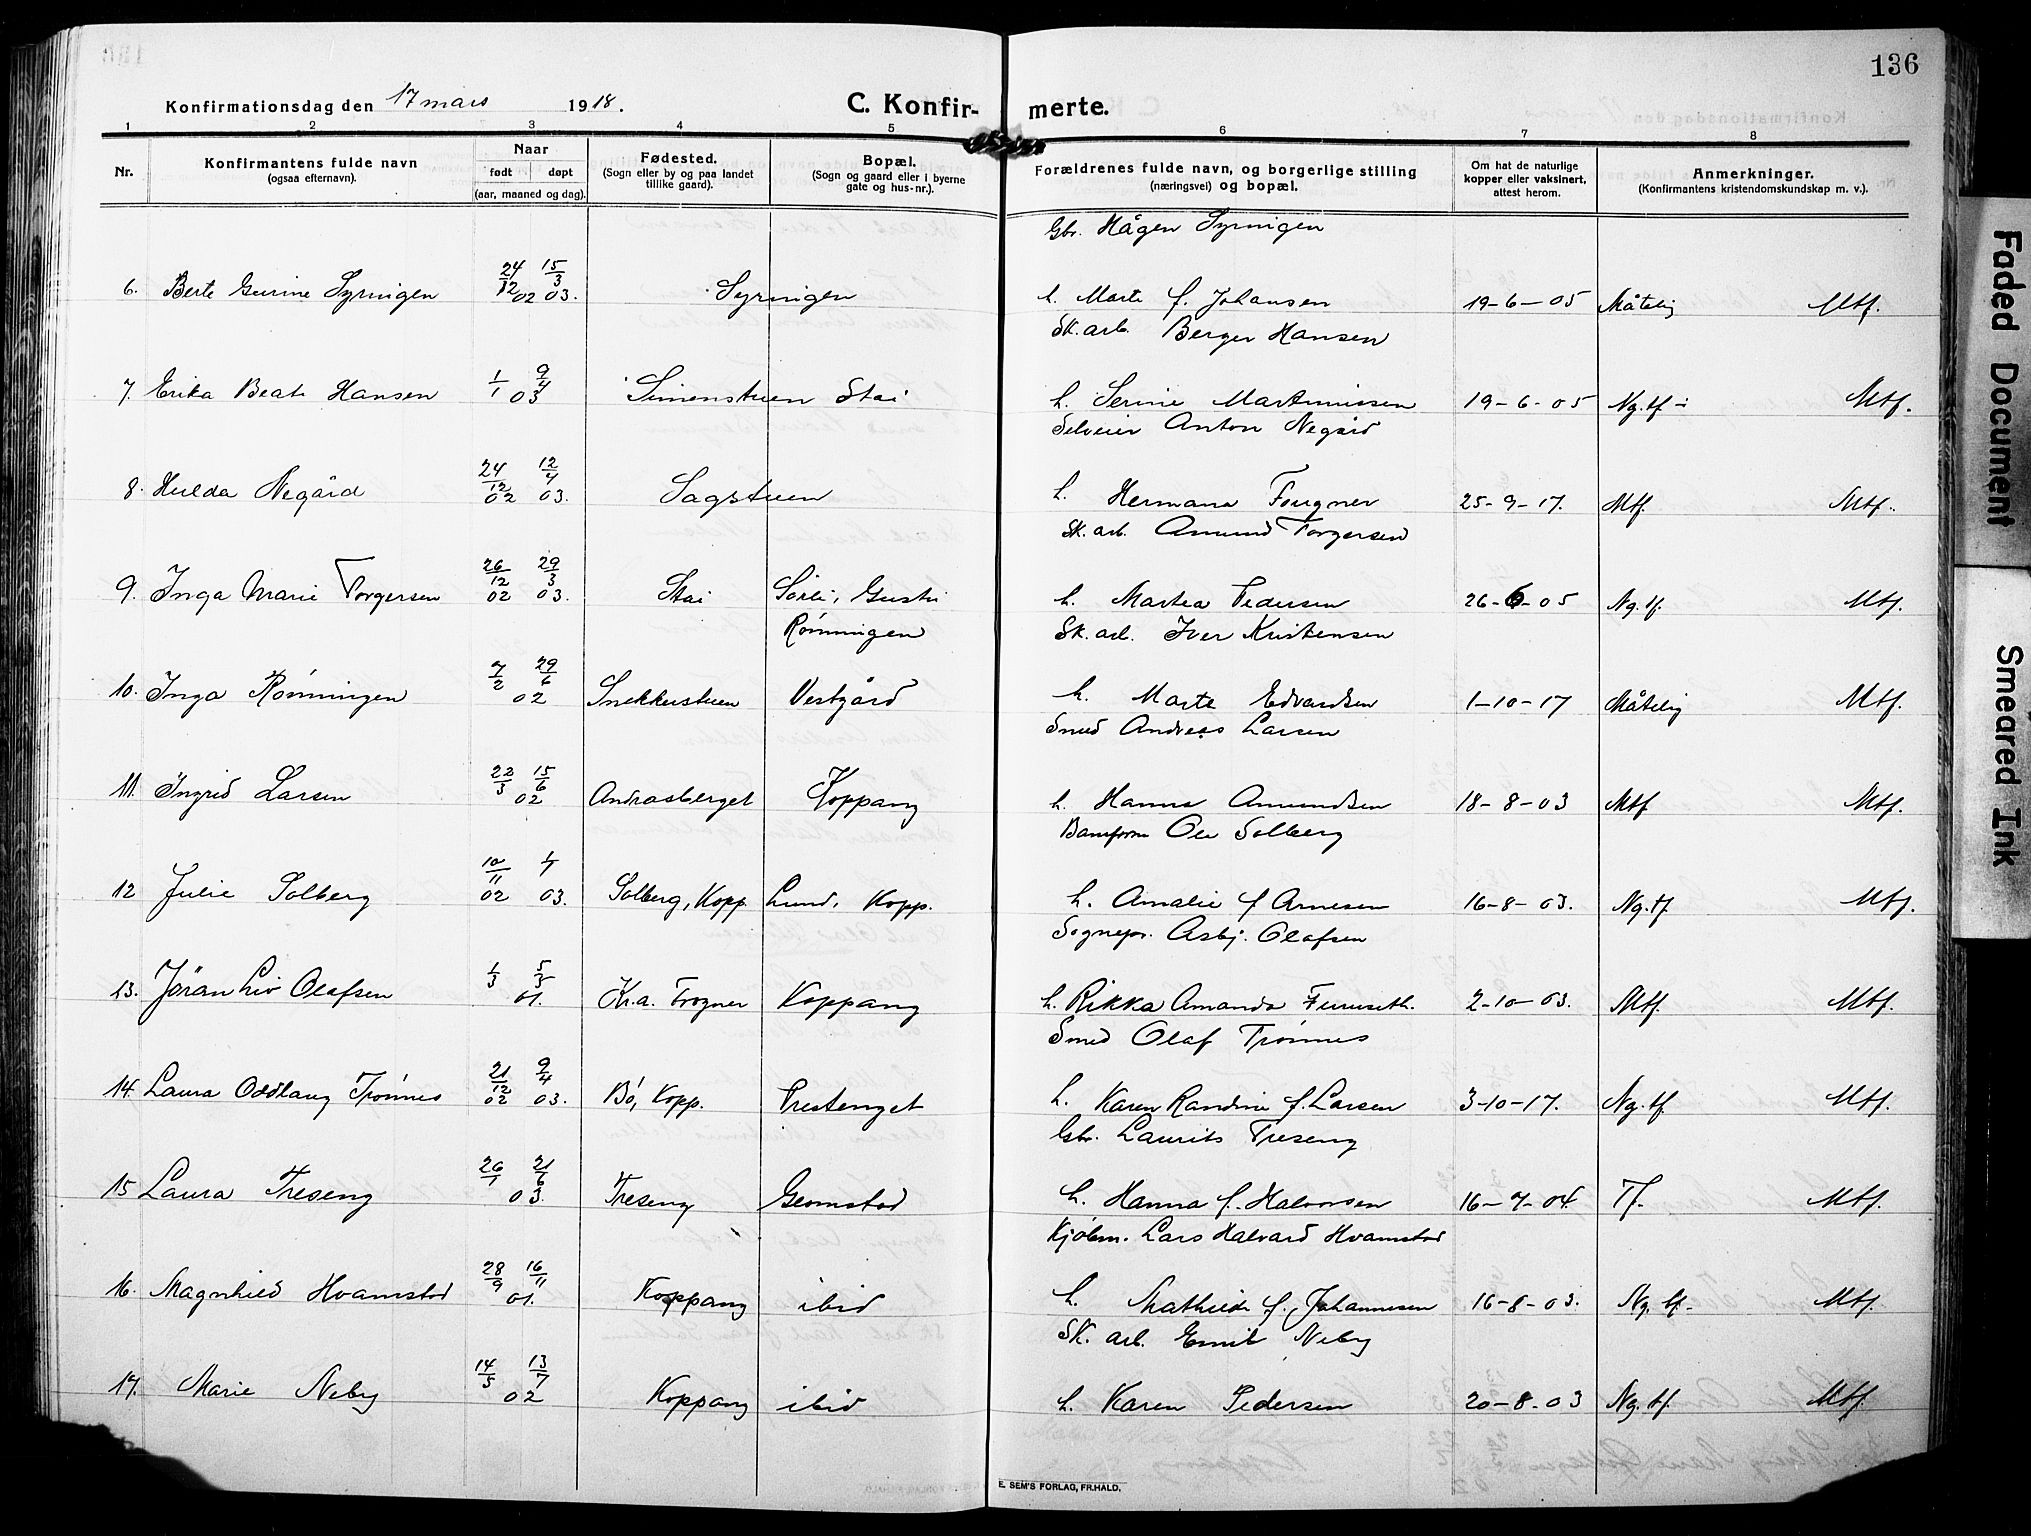 136
Konfirmationsdag den 17 mars 1918.
C. Konfir- merte.
1 2 3 4 5 6 7 8
Nr.
Konfirmantens fulde navn
(ogsaa efternavn).
Naar
født døpt
(aar, maaned og dag).
Fødested.
(Sogn eller by og paa landet
tillike gaard).
Bopæl.
(Sogn og gaard eller i byerne
gate og hus-nr.).
Forældrenes fulde navn, og borgerlige stilling
(næringsvei) og bopæl.
Om hat de naturlige
kopper eller vaksinert,
attest herom.
Anmerkninger.
(Konfirmantens kristendomskundskap m. v.).
Gbr. Hågen Syringen
6. Berte Gurine Syringen 24/12 02 15/3 03. Syringen h. Marte f. Johansen 19-6-05 Måtelig Mtf.
Sk. arb. Berger Hansen
7. Erika Beate Hansen 1/1 9/4 03 Simenstuen Stai h. Serine Martinussen 19-6-05 Ng. tf. Mtf.
Selveier Anton Negård
8. Hulda Negård 24/12 02 12/4 03. Sagstuen h. Hermana Fougner 25-9-17. Mtf. Mtf.
Sk. arb. Amund Torgersen
9. Inga Marie Torgersen 26/12 02 29/3 03. Stai h. Martea Pedersen 26-6-05 Ng. tf. Mtf.
Rønningen
Sk. arb. Iver Kristensen
10. Inga Rønningen 7/2 29/6 02 Snekkerstuen Vestgård h. Marte Edvardsen 1-10-17 Måtelig Mtf.
Smed Andreas Larsen
11. Ingrid Larsen 22/3 15/6 02 Andrasberget Koppang h. Hanna Amundsen 18-8-03 Mtf Mtf.
Baneform Ole Solberg
12 Julie Solberg 10/11 02 1/7 03. Solberg, Kopp Lund, Kopp. h. Amalie f Arnesen 16-8-03. Ng. tf. Mtf.
Sognepr. Asbj. Olafsen
13. Jøran Liv Olafsen 1/3 5/5 01. Kr.a. Frogner Koppang h. Rikka Amanda Furuseth. 2-10-03. Mtf. Mtf.
Smed Olaf Trønnes
14. Laura Oddlaug Trønnes 21/12 02 9/4 03. Bø, Kopp. Prestenget h. Karen Randine f. Larsen 3-10-17. Ng. tf. Mtf.
Gbr. Laurits Treseng
15 Laura Treseng 26/1 21/6 03. Treseng h. Hanna f. Halvorsen 16-7-04. Tf. Mtf.
Kjøbm. Lars Halvard Hvamstad
16. Magnhild Hvamstad 28/9 16/11 01. Koppang ibid h. Mathilde f. Johannesen 16-8-03. Ng. tf. Mtf.
Sk. arb. Emil Neby
17. Marie Neby 14/5 13/7 02 Koppang ibid h. Karen Pedersen 20-8-03 Ng. tf. Mtf.
E. SEM'S FORLAG, FR.HALD.
Faded Document
Smeared Ink